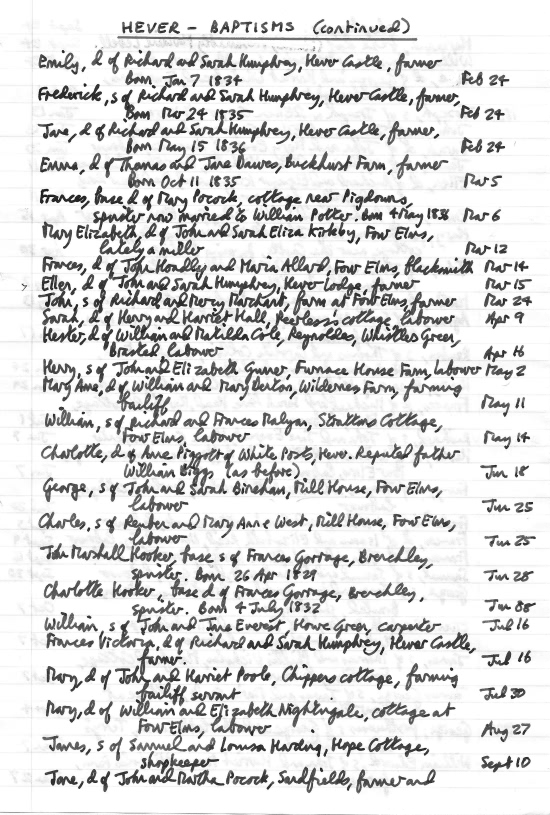 HEVER - BAPTISMS (continued)
Emily, d of Richard and Sarah Humphrey, Hever Castle, farmer
Born Jan 7 1834 Feb 24
Frederick, s of Richard and Sarah Humphrey, Hever Castle, farmer,
Born Mar 24 1835 Feb 24
Jane, d of Richard and Sarah Humphrey, Hever Castle, farmer,
Born May 15 1836 Feb 24
Emma, d of Thomas and Jane Dawes, Buckhurst Farm, farmer
Born Oct 11 1835 Mar 5
Frances, base d of Mary Pocock, cottage near Pigdowns,
spinster now married to William Potter. Born 4 May 1836 Mar 6
Mary Elizabeth, d of John and Sarah Eliza Kirkby, Four Elms,
lately a miller Mar 12
Frances, d of John Hoadley and Maria Allard, Four Elms, Blacksmith Mar 14
Ellen, d of John and Sarah Humphrey, Hever Lodge, farmer Mar 15
John, s of Richard and Mercy Marchant, farm at Four Elms, farmer Mar 24
Sarah, d of Henry and Harriet Hall, Peerless's cottage, labourer Apr 9
Hester, d of William and Matilda Cole, Reynolds, Whistles Green,
Brasted, labourer Apr 16
Henry, s of John and Elizabeth Gunner, Furnace House Farm, labourer May 2
Mary Ann, d of William and Mary Derton, Wilderness Farm, farming
bailiff May 11
William, s of Richard and Frances Malyan, Strattons Cottage,
Four Elms, labourer May 14
Charlotte, d of Anne Piggott of White Posts, Hever. Reputed father
William Biggs (as before) Jun 18
George, s of John and Sarah Bincham, Mill House, Four Elms,
labourer Jun 25
Charles, s of Reuben and Mary Anne West, Mill House, Four Elms,
labourer Jun 25
John Marshall Hooker, base s of Frances Gorrage, Brenchley,
spinster. Born 26 Apr 1829 Jun 28
Charlotte Hooker, base d of Frances Gorrage, Brenchley,
spinster. Born 4 July 1832 Jun 28
William, s of John and Jane Everest, Howe Green, carpenter Jul 16
Frances Victoria, d of Richard and Sarah Humphrey, Hever Castle,
farmer. Jul 16
Mary, d of John and Harriet Poole, Chippers cottage, farming
bailiff servant Jul 30
Mary, d of William and Elizabeth Nightingale, cottage at
Four Elms, labourer Aug 27
James, s of Samuel and Louisa Harding, Hope Cottage,
shopkeeper Sept 10
Jane, d of John and Martha Pocock, Sandfields, farmer and